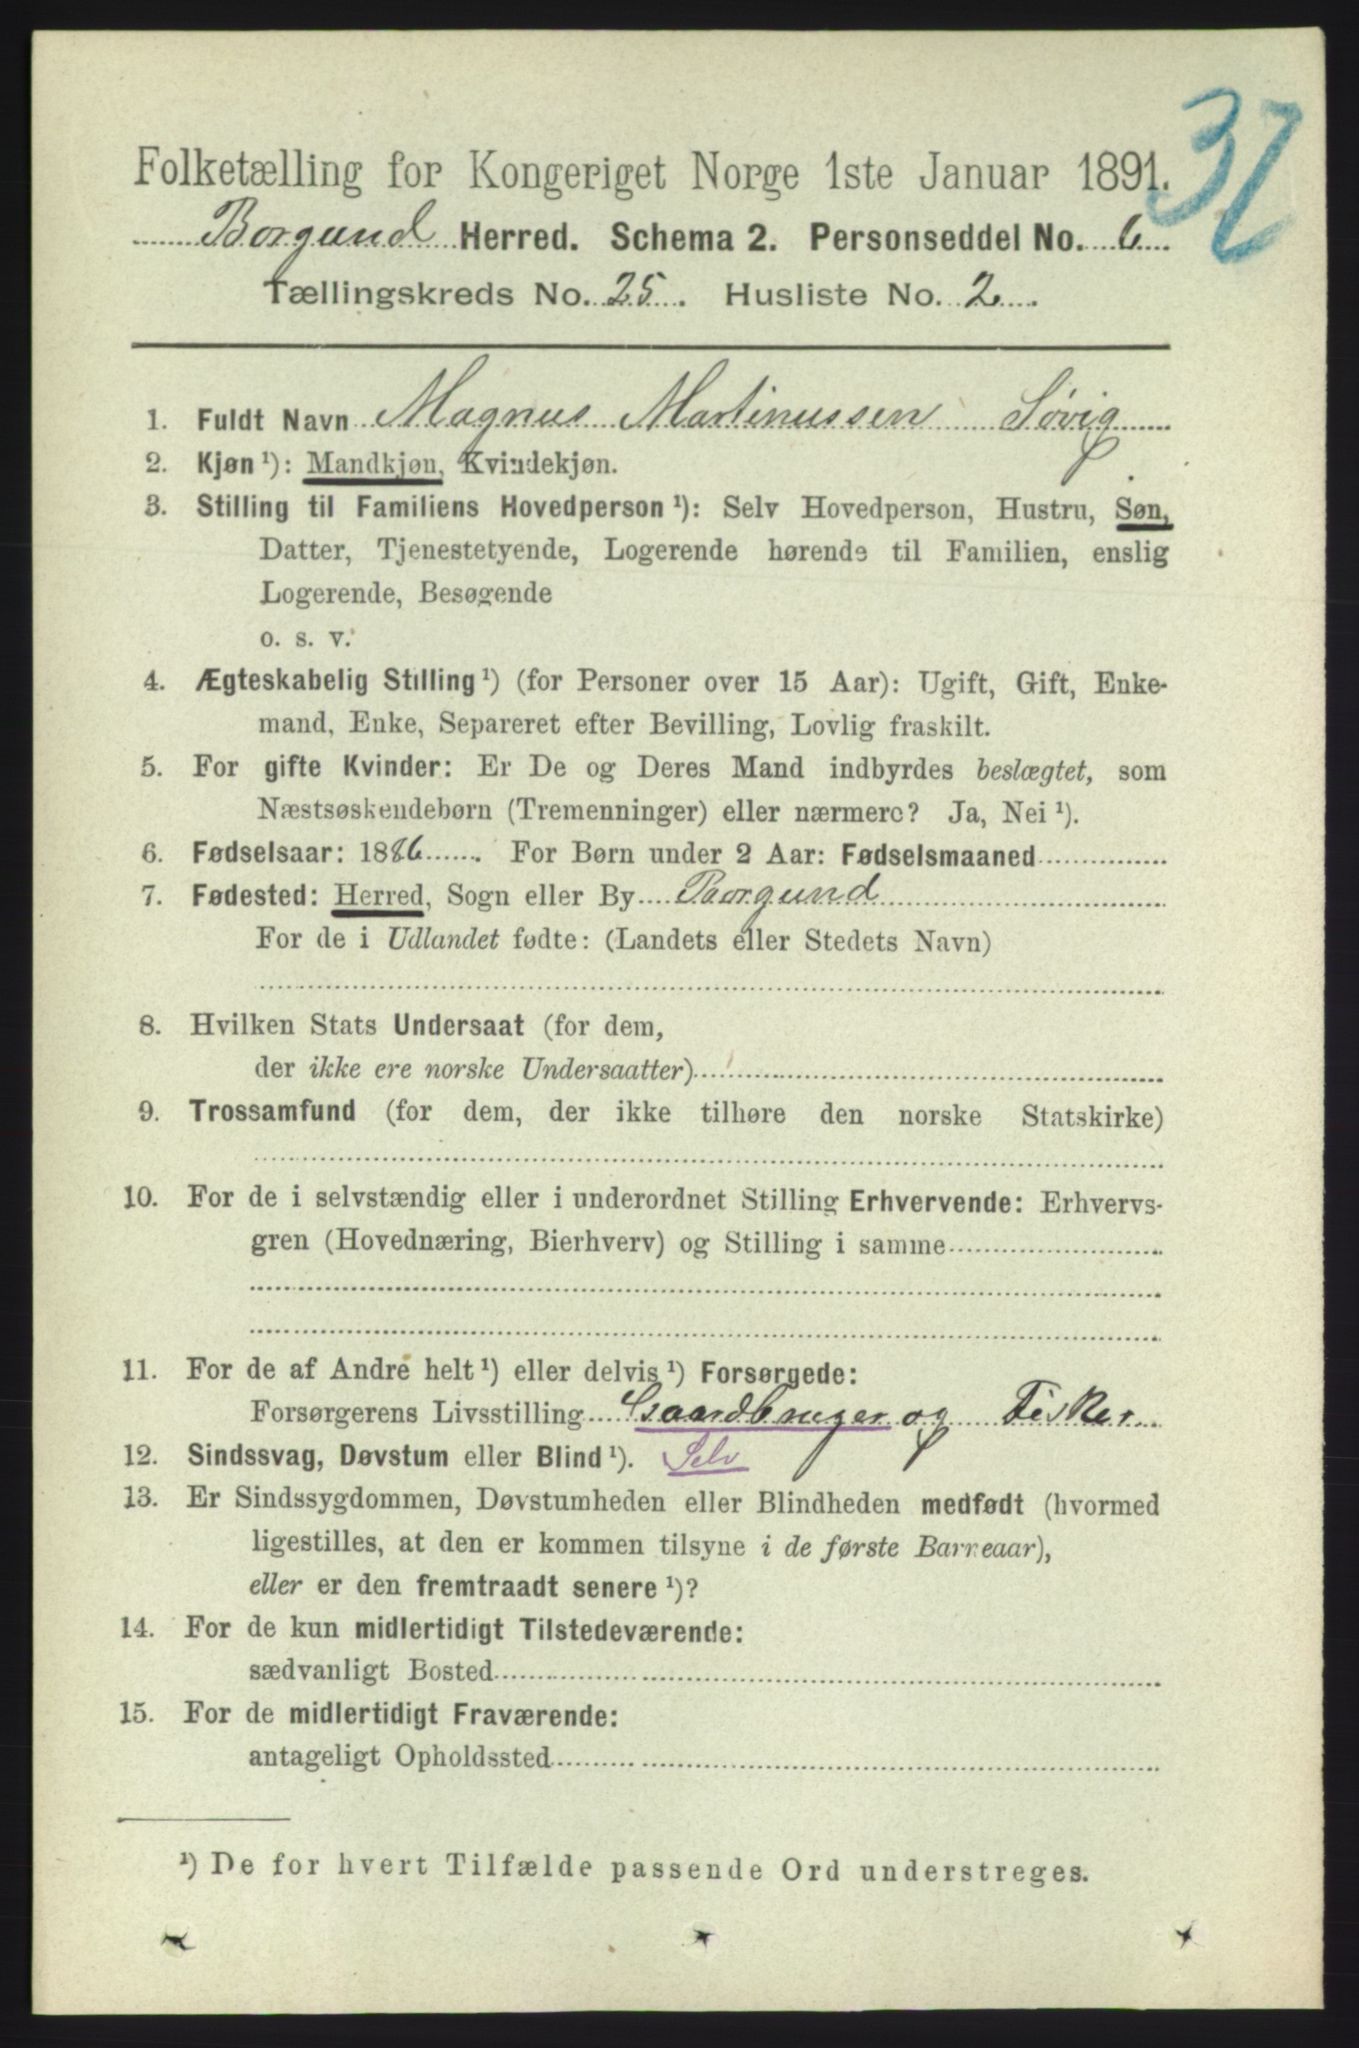 Folketælling for Kongeriget Norge 1ste Januar 1891.
Borgund Herred. Schema 2. Personseddel No. 6
Tællingskreds No. 25. Husliste No. 2.
1. Fuldt Navn Magnus Martinussen Søvig
2. Kjøn ¹): Mandkjøn, Kvindekjøn.
3. Stilling til Familiens Hovedperson ¹): Selv Hovedperson, Hustru, Søn,
Datter, Tjenestetyende, Logerende hørende til Familien, enslig
Logerende, Besøgende
o. s. v.
4. Ægteskabelig Stilling ¹) (for Personer over 15 Aar): Ugift, Gift, Enke-
mand, Enke, Separeret efter Bevilling, Lovlig fraskilt.
5. For gifte Kvinder: Er De og Deres Mand indbyrdes beslægtet, som
Næstsøskendebørn (Tremenninger) eller nærmere? Ja, Nei ¹).
6. Fødselsaar: 1886. For Børn under 2 Aar: Fødselsmaaned
7. Fødested: Herred, Sogn eller By Borgund
For de i Udlandet fødte: (Landets eller Stedets Navn)
8. Hvilken Stats Undersaat (for dem,
der ikke ere norske Undersaatter)
9. Trossamfund (for dem, der ikke tilhøre den norske Statskirke)
10. For de i selvstændig eller i underordnet Stilling Erhvervende: Erhvervs-
gren (Hovednæring, Bierhverv) og Stilling i samme
11. For de af Andre helt ¹) eller delvis ¹) Forsørgede:
Forsørgerens Livsstilling Gaardbruger og Fisker
12. Sindssvag, Døvstum eller Blind ¹). Selv
13. Er Sindssygdommen, Døvstumheden eller Blindheden medfødt (hvormed
ligestilles, at den er kommen tilsyne i de første Barneaar),
eller er den fremtraadt senere ¹)?
14. For de kun midlertidigt Tilstedeværende:
sædvanligt Bosted
15. For de midlertidigt Fraværende:
antageligt Opholdssted
¹) De for hvert Tilfælde passende Ord understreges.